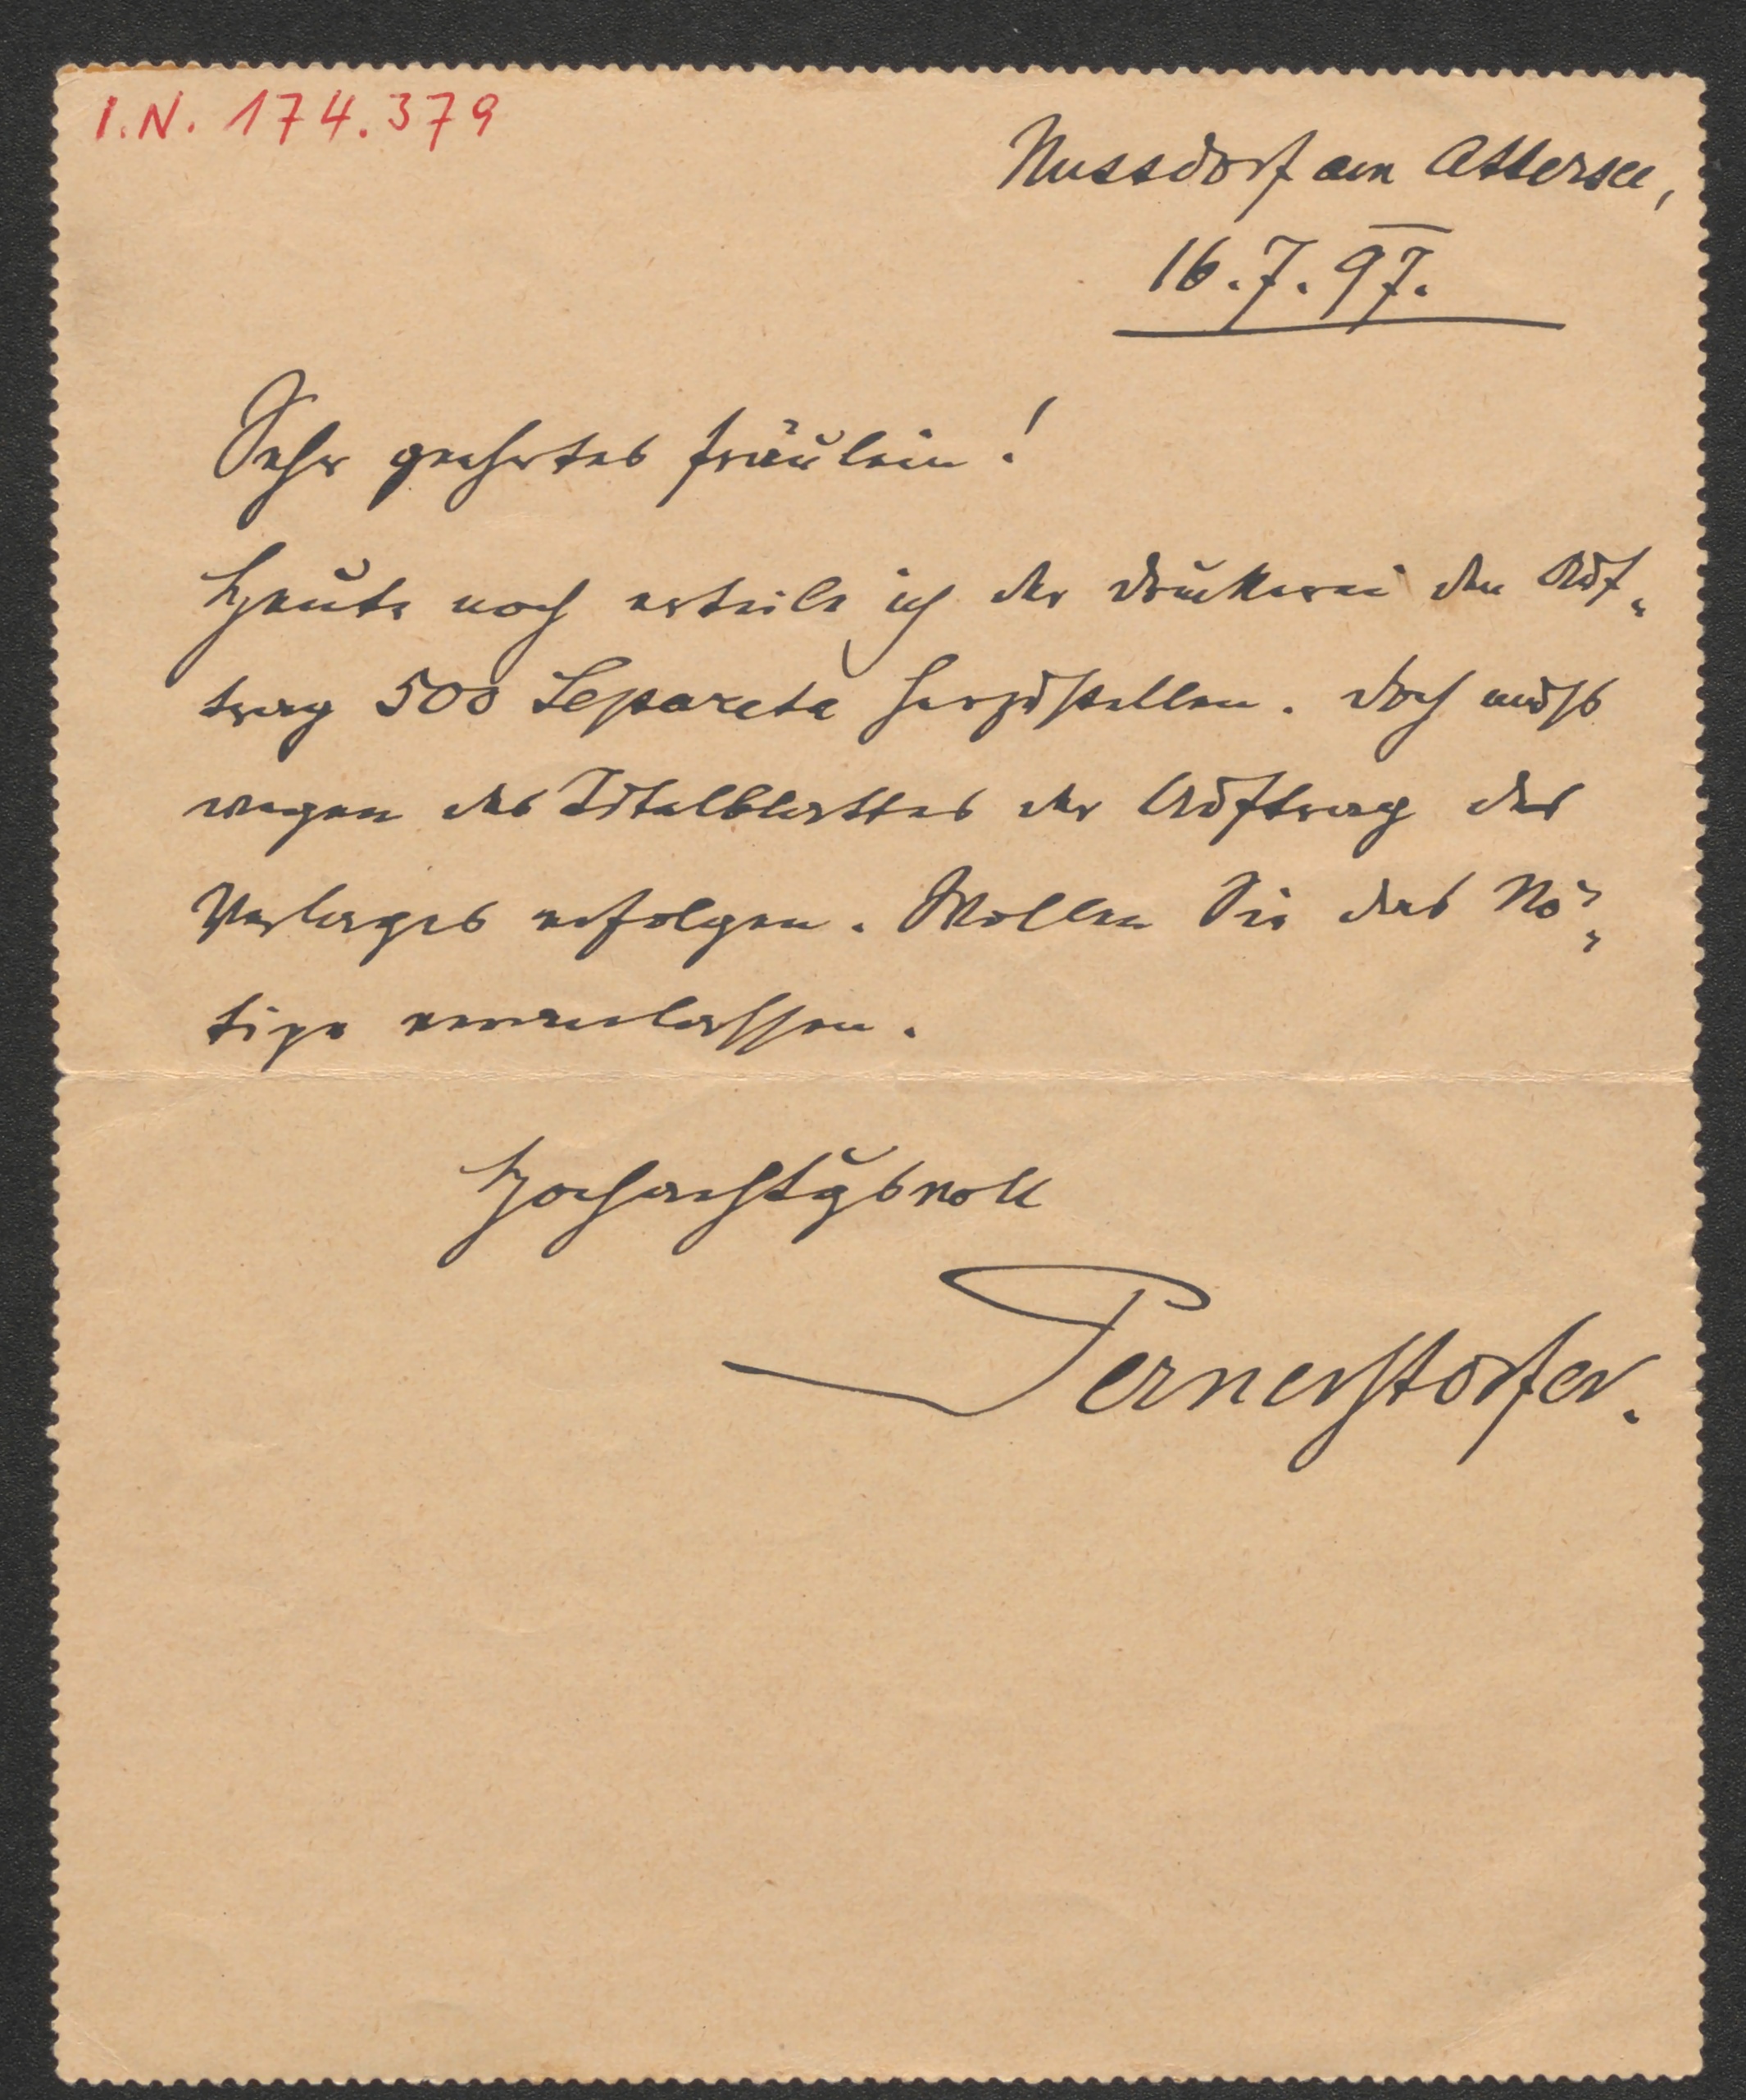 I.N. 174.379
Nussdorf am Attersee,
16.7.97.
Sehr geehrtes Fräulein!
Heute noch erteile ich der Druckerei den Auf-
trag 500 Separata herzustellen. Doch muss
wegen des Titelblattes der Auftrag des
Verlages erfolgen. Wollen Sie das Nö-
tige veranlassen.
Hochachtgsvoll
Pernerstorfer.